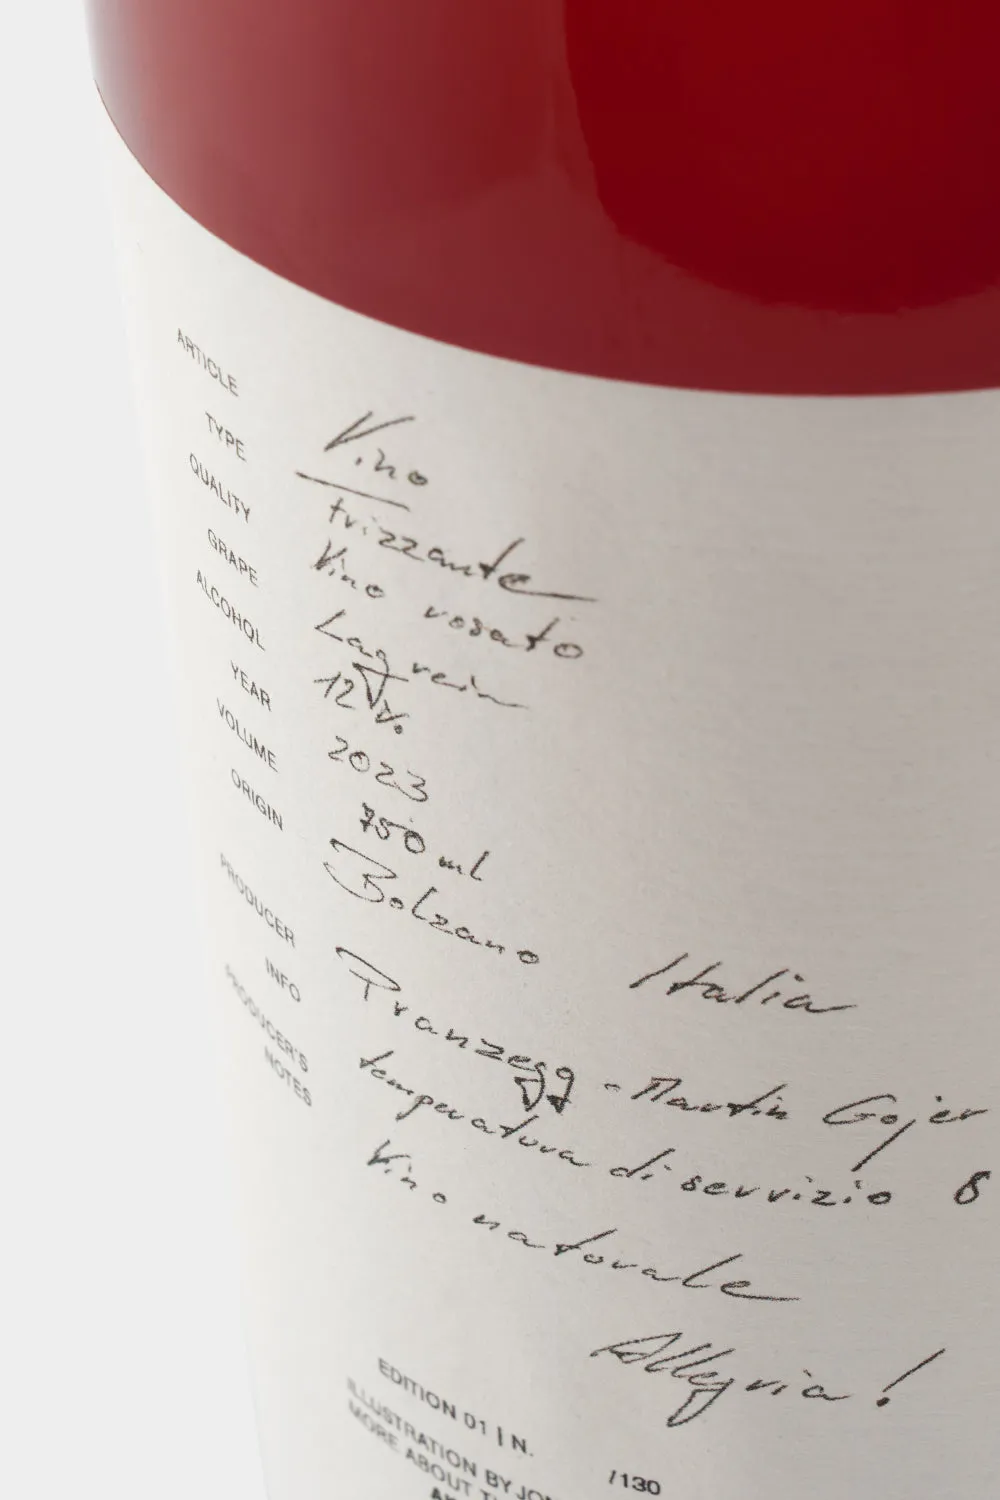 ARTICLE Vino
TYPE frizzante
QUALITY Vino rosato
GRAPE Lagrein
ALCOHOL 12%
YEAR 2023
VOLUME 750 ml
ORIGIN Bolzano Italia
PRODUCER Pranzegg - Martin Gojer
INFO temperatura di servizio 8
PRODUCER'S NOTES Vino naturale
Allegria!
EDITION 01 | N. /130
ILLUSTRATION BY
MORE ABOUT